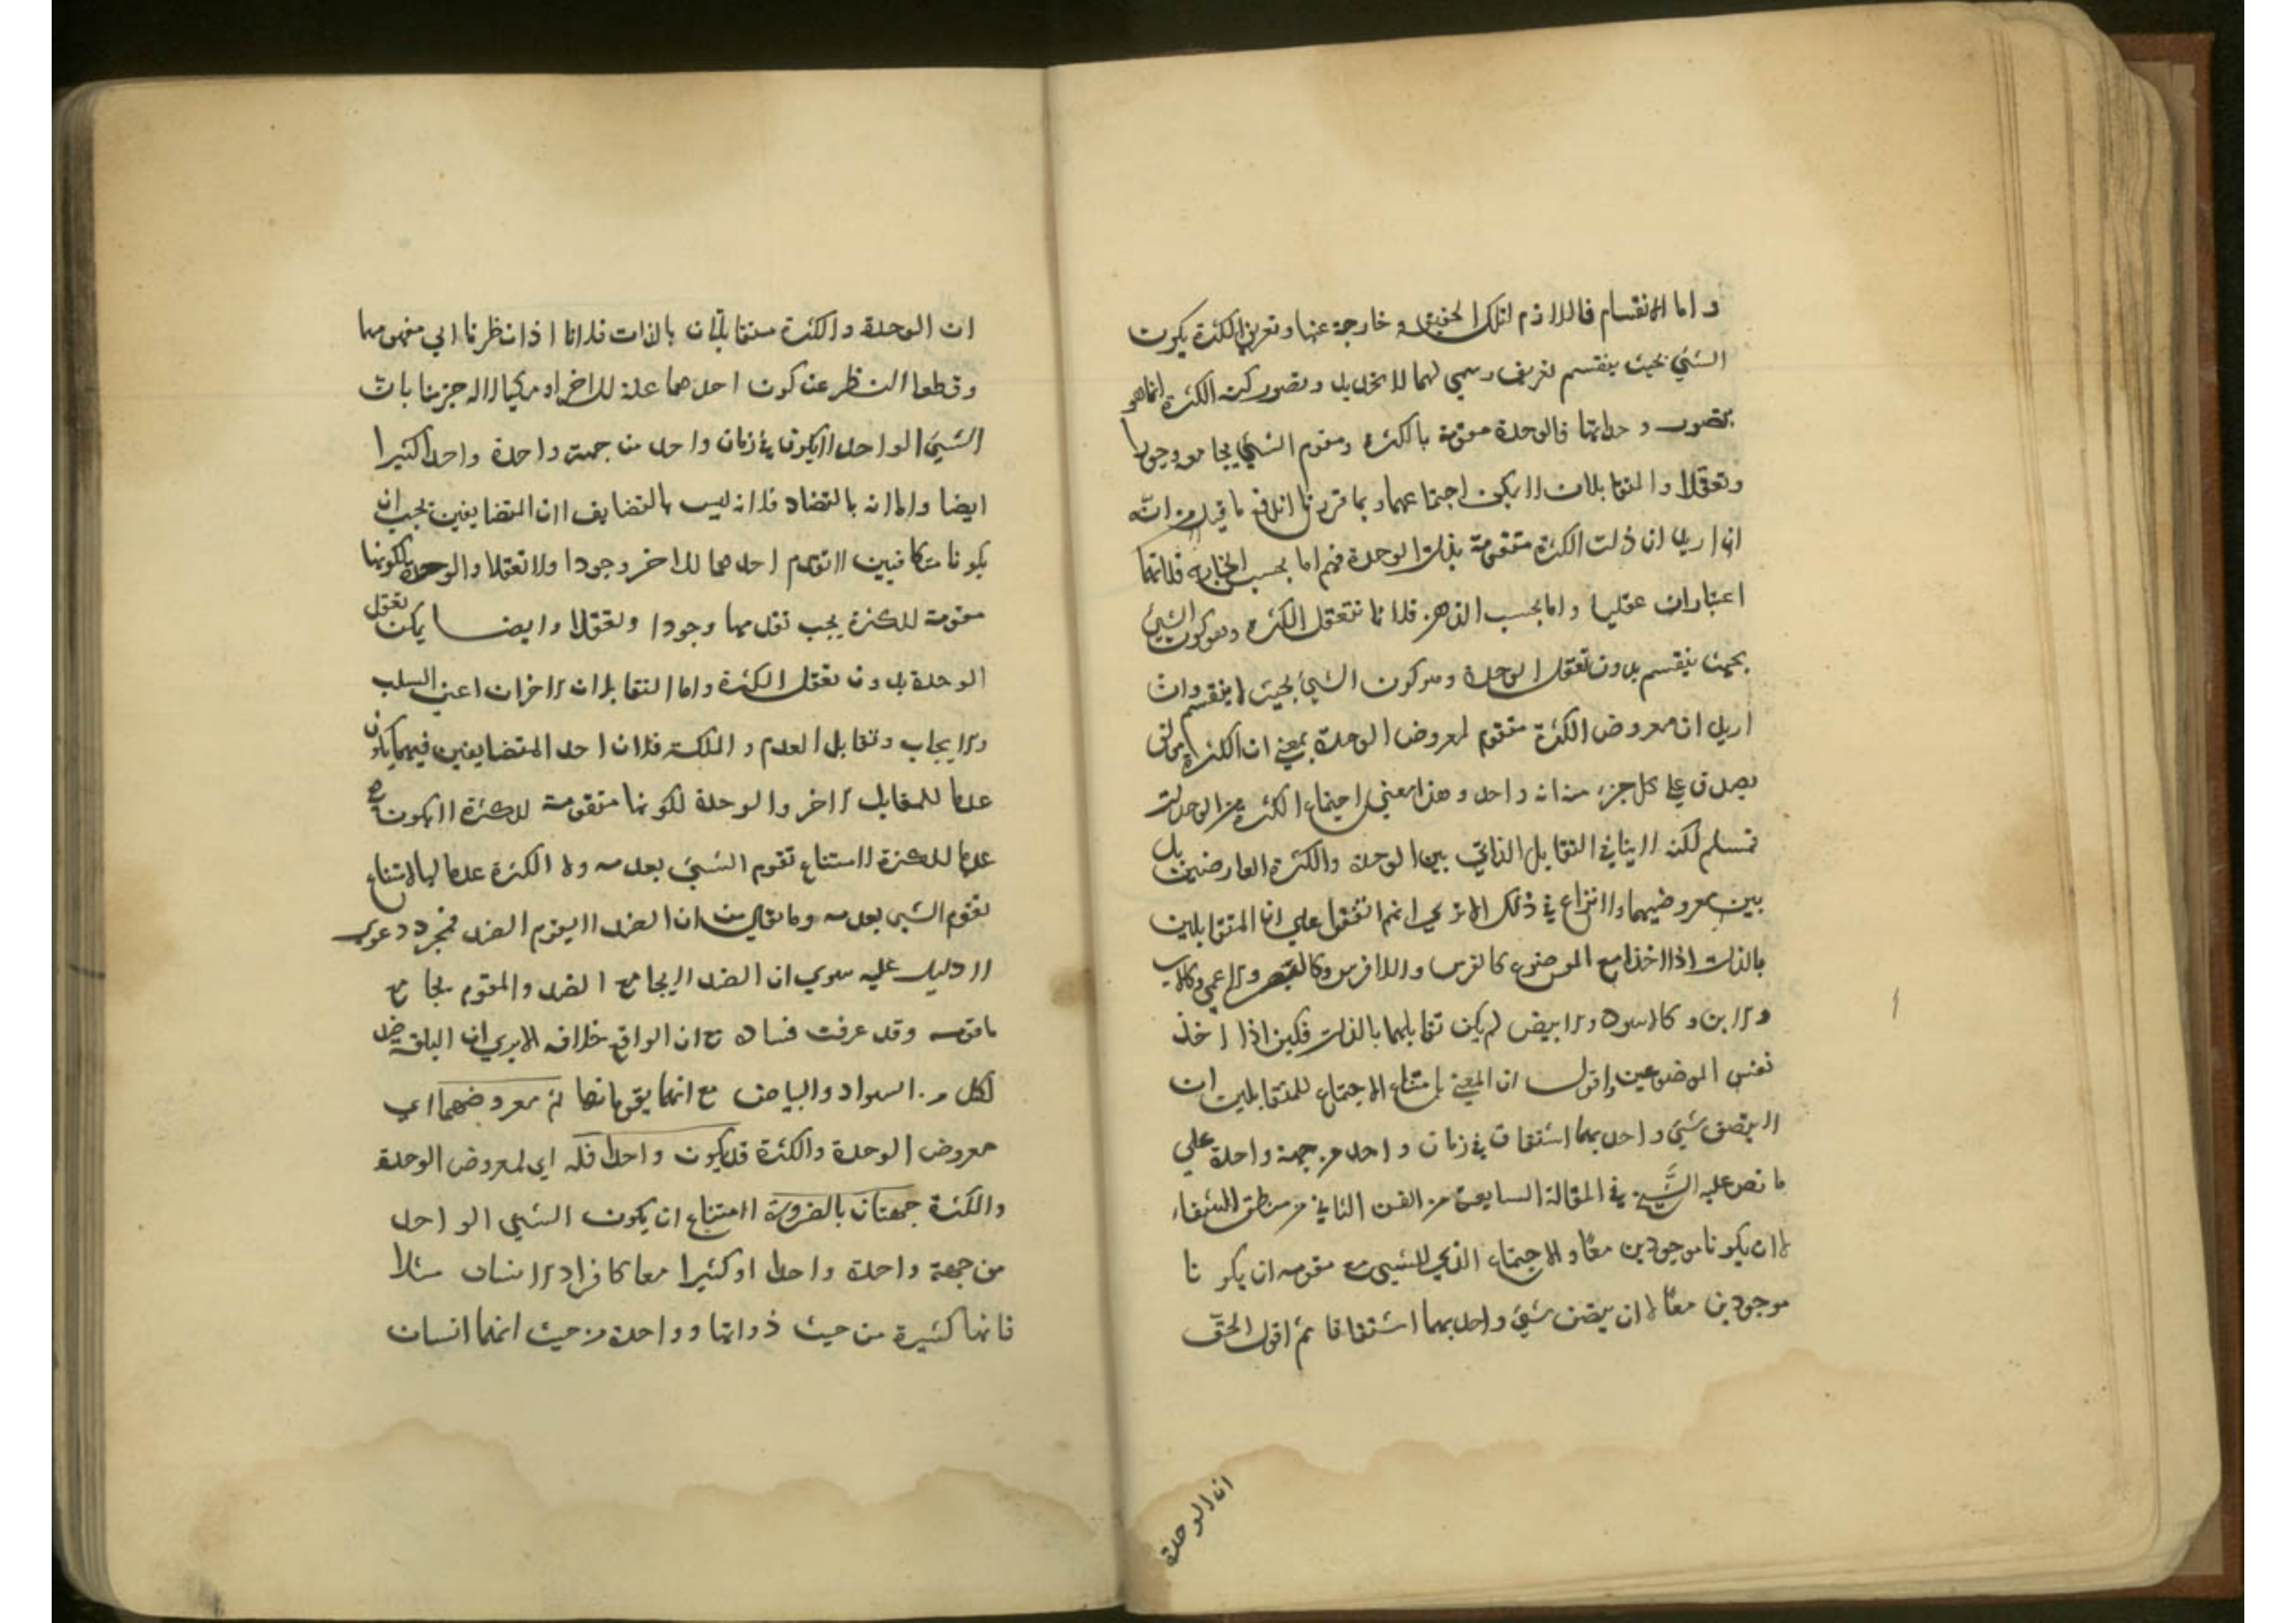 واما الانقسام فاللازم لتلك الحقيقة خارجة عنها وتعريف الكثرة بكون
الشيئ بحيث ينقسم تعريف رسمي لهما لا تحديد وتصور كنه الكثرة انما هو
بتصور وحداتها فالوحدة مقومة بالكثرة ومقوم الشيئ يجامعه وجودا
وتعقلا والمتقابلان لا يمكن اجتماعهما وبما قررنا اندفع ما قيل من انه
ان اريد ان ذات الكثرة متقومة بذات الوحدة فهم اما بحسب الخارج فلانهما
اعتباران عقليا واما بحسب الذهن فلانا نتعقل الكثرة وهو كون الشيئ
بحيث ينقسم بدون تعقل الوحدة وهو كون الشيئ بحيث لا ينقسم وان
اريد ان معروض الكثرة متقوم لمعروض الوحدة بمعني ان الكثرة
يصدق علي كل جزء منه انه واحد وهذا معني اجتماع الكثرة من الوحدات
فمسلم لكنه لا ينافي التقابل الذاتي بين الوحدة والكثرة العارضتين بل
بين معروضيهما ولا نزاع في ذلك الا تري انهم اتفقوا علي ان المتقابلين
بالذات اذا اخذا مع الموضوع كالفرس واللافرس وكالبصر والاعمي وكالاب
والابن وكالاسود والابيض لم يكن تقابلهما بالذات فكيف اذا اخذ
نفس الموضوعين واقول ان المعني بامتناع الاجتماع للمتقابلين ان
لا يتصف شيئ واحد بهما اشتقاقا في زمان واحد من جهة واحدة علي
ما نص عليه الشيخ في المقالة السابعة من الفن الثاني من منطق الشفاء
لا ان يكونا موجودين معا والاجتماع الذي للشيئ مع مقومه ان يكونا
موجودين معا لا ان يتصف شيئ واحد بهما اشتقاقا ثم اقول الحق
ان الوحدة
ان الوحدة والكثرة متقابلان بالذات فلانا اذا نظرنا الي مفهومهما
وقطعنا النظر عن كون احدهما علة للاخر او مكيالا له جزمنا بان
الشيئ الواحد لا يكون في زمان واحد من جهة واحدة واحدا كثيرا
ايضا واما انه بالتضاد فلانه ليس بالتضايف لان المتضايفين يجب ان
يكونا متكافيين لا تقدم احدهما للاخر وجودا ولا تعقلا والوحدة لكونها
مقومة للكثرة يجب تقدمها وجودا وتعقلا وايضا يمكن تعقل
الوحدة بدون تعقل الكثرة واما التقابلان الاخران اعني السلب
والايجاب وتقابل العدم والملكة فلان احد المتضايفين فيهما يكون
عدما للمقابل الاخر والوحدة لكونها متقومة للكثرة لا يكون
عدما للكثرة لامتناع تقوم الشيئ بعدمه ولا الكثرة عدما لها لامتناع
تقوم الشيئ بعدمه وما يقال من ان الضد لا يقوم الضد فمجرد دعوي
لا دليل عليه سوي ان الضد لا يجامع الضد والمقوم يجامع
ما قومه وقد عرفت فساده مع ان الواقع خلافه الا يري ان البلقة ضد
لكل من السواد والبياض مع انهما يقومانها ثم معروضهما اي
معروض الوحدة والكثرة قد يكون واحدا فله اي لمعروض الوحدة
والكثرة جهتان بالضرورة لامتناع ان يكون الشيئ الواحد
من جهة واحدة واحدا او كثيرا معا كافراد الانسان مثلا
فانها كثيرة من حيث ذواتها وواحدة من حيث انها انسان